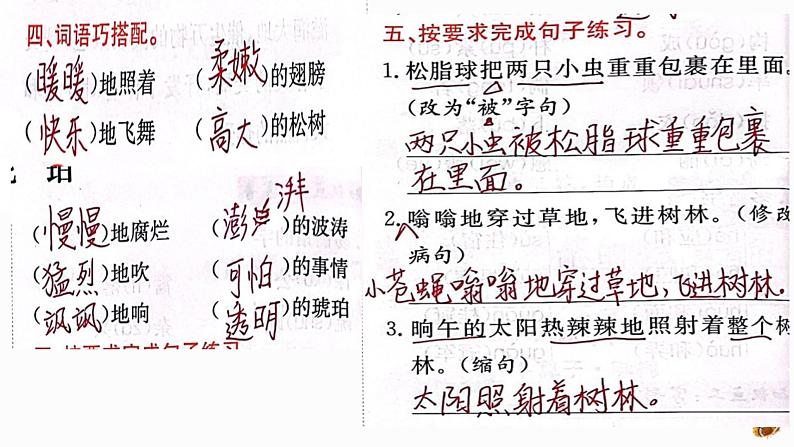 四、词语巧搭配。
(暖暖)地照着 (柔嫩)的翅膀
(快乐)地飞舞 (高大)的松树
珀
湃
(慢慢)地腐烂 (澎湃)的波涛
(猛烈)地吹 (可怕)的事情
(飒飒)地响 (透明)的琥珀
五、按要求完成句子练习。
1. 松脂球把两只小虫重重包裹在里面。
(改为“被”字句)
两只小虫被松脂球重重包裹
在里面。
2. 嗡嗡地穿过草地,飞进树林。(修改
病句)
小苍蝇嗡嗡地穿过草地,飞进树林。
3. 晌午的太阳热辣辣地照射着整个树
林。(缩句)
太阳照射着树林。